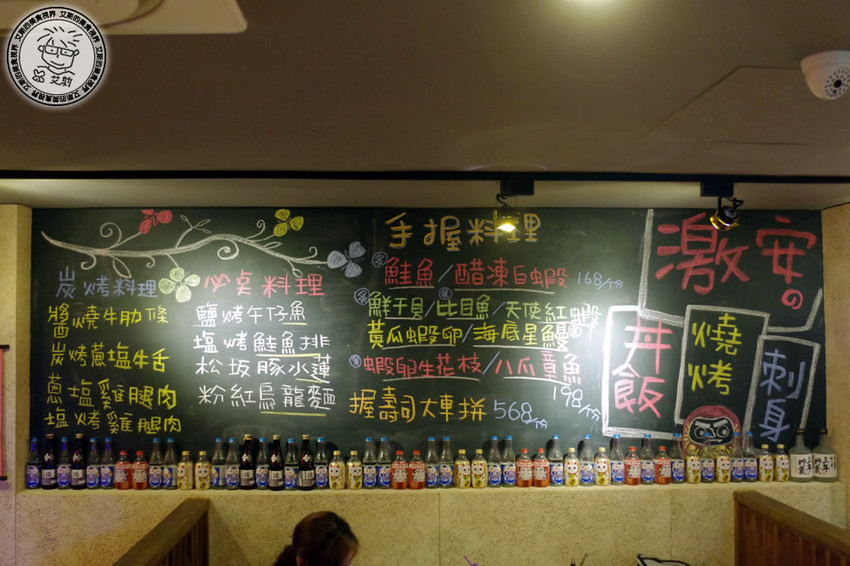 艾斯的美食視界 艾斯的美食視界 艾斯的美食視界
艾斯
炭烤料理
醬燒牛肋條
炭烤蔥塩牛舌
蔥塩雞腿肉
塩烤雞腿肉
必桌料理
鹽烤午仔魚
塩烤鮭魚排
松坂豚水蓮
粉紅烏龍麵
手握料理
鮭魚/醋凍白蝦 168/分
鮮干貝/比目魚/天使紅蝦
黃瓜蝦卵/海底星鰻
蝦卵生花枝/八爪章魚
198/分
握壽司大車拼 568/分
激安の
丼飯
燒烤
刺身